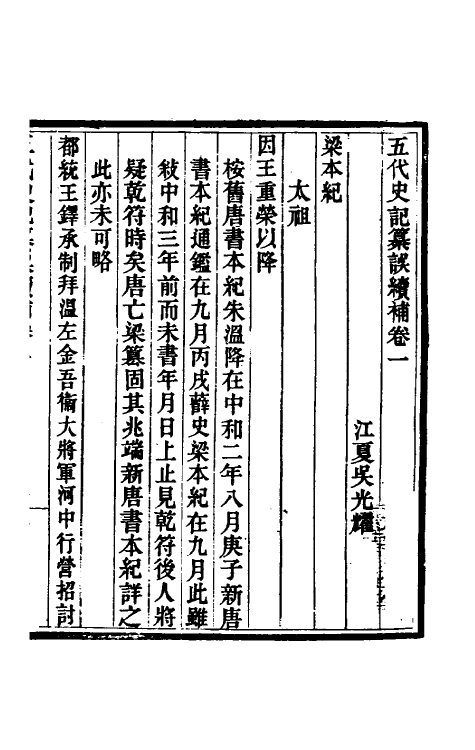 五代史記纂誤續補卷一
江夏吳光耀
梁本紀
太祖
因王重榮以降
桉舊唐書本紀朱溫降在中和二年八月庚子新唐
書本紀通鑑在九月丙戌薛史梁本紀在九月此雖
敍中和三年前而未書年月日上止見乾符後人將
疑乾符時矣唐亡梁篡固其兆端新唐書本紀詳之
此亦未可略
都統王鐸承制拜溫左金吾衞大將軍河中行營招討